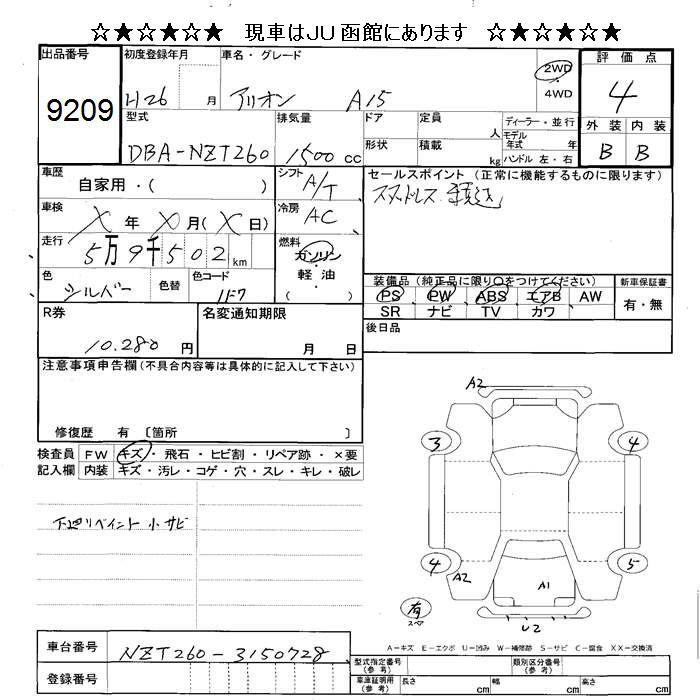 ☆★☆★☆★ 現車はJU函館にあります ☆★☆★☆★
出品番号 初度登録年月 車名・グレード 2WD 評価点
9209 H26 月 アリオン A15 4WD 4
型式 排気量 ドア 定員 人 ディーラー・並行 外装 内装
DBA-NZT260 1500 cc 形状 積載 kg モデル年式 年 B B
ハンドル 左・右
車歴 自家用・( ) シフト A/T セールスポイント (正常に機能するものに限ります)
スタッドレス 積込
車検 X 年 X 月 (X 日) 冷房 AC
走行 5万9千502km 燃料 ガソリン
軽・油
( )
色 シルバー 色替 色コード 1F7
装備品 (純正品に限り〇をつけてください) 新車保証書
PS PW ABS エアB AW 有・無
SR ナビ TV カワ
R券 10.280 円 名変通知期限 月 日 後日品
注意事項申告欄 (不具合内容等は具体的に記入して下さい)
修復歴 有 〔箇所 〕
検査員 FW キズ・飛石・ヒビ割・リペア跡・×要
記入欄 内装 キズ・汚レ・コゲ・穴・スレ・キレ・破レ
下廻リペイント 小サビ
A2
3 4
4 5
A2 A1
有
スペア
U2
A=キズ E=エクボ U=凹み W=補修跡 S=サビ C=腐食 XX=交換済
車台番号 NZT260-3150728
登録番号
型式指定番号(参考) 類別区分番号(参考)
車庫証明用(参考) 長さ cm 幅 cm 高さ cm